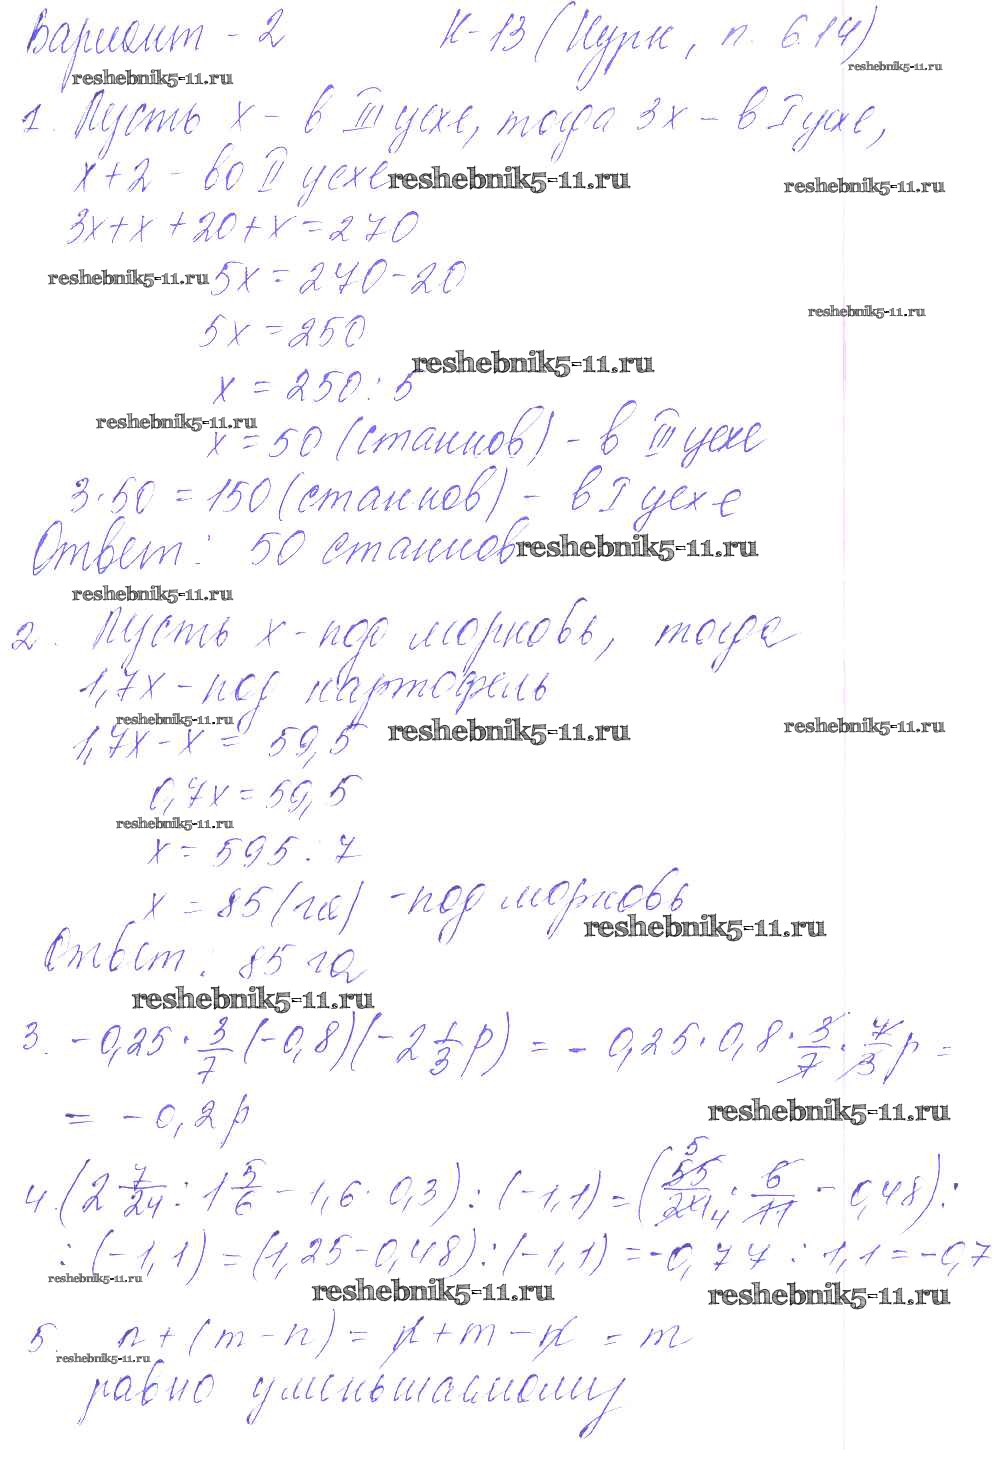 Вариант - 2 К-13 (Нурк, п. 6.14)
reshebnik5-11.ru reshebnik5-11.ru
1. Пусть x - в III цехе, тогда 3x - в I цехе,
x+2 - во II цехе reshebnik5-11.ru reshebnik5-11.ru
3x+x+20+x=270
reshebnik5-11.ru 5x=270-20
reshebnik5-11.ru
5x=250
reshebnik5-11.ru
x=250:5
reshebnik5-11.ru
x=50 (станков) - в III цехе
3·50=150 (станков) - в I цехе
Ответ: 50 станков reshebnik5-11.ru
reshebnik5-11.ru
2. Пусть x - под морковь, тогда
1,7x - под картофель
reshebnik5-11.ru
1,7x-x= 59,5 reshebnik5-11.ru reshebnik5-11.ru
0,7x=59,5
reshebnik5-11.ru
x=595:7
x=85 (га) - под морковь
reshebnik5-11.ru
Ответ: 85 га
reshebnik5-11.ru
3. -0,25·3/7(-0,8)(-2 1/3 p) = -0,25·0,8·3/7·7/3 p =
= -0,2p
reshebnik5-11.ru
4. (2 7/24 : 1 5/6 - 1,6·0,3):(-1,1)=(55/24 · 6/11 - 0,48):
:(-1,1)=(1,25-0,48):(-1,1)=-0,77:1,1=-0,7
reshebnik5-11.ru reshebnik5-11.ru reshebnik5-11.ru
5. n+(m-n)=n+m-n=m
reshebnik5-11.ru
равно уменьшаемому